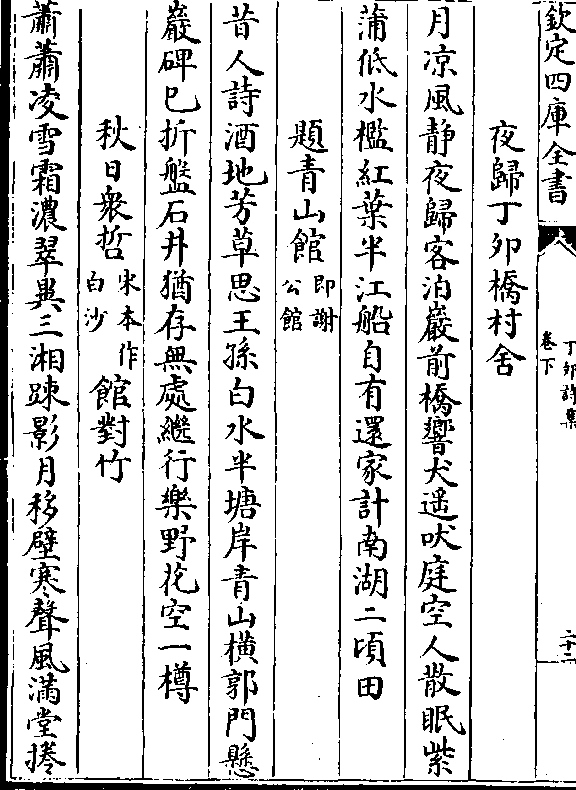 欽定四庫全書
丁卯詩集
卷下
二十二
夜歸丁卯橋村舍
月凉風静夜歸客泊巖前橋響犬遥吠庭空人散眠紫
蒲低水檻紅葉半江船自有還家計南湖二頃田
題青山館即謝公館
昔人詩酒地芳草思王孫白水半塘岸青山横郭門懸
巖碑已折盤石井猶存無處繼行樂野花空一樽
秋日衆哲宋本作白沙館對竹
蕭蕭凌雪霜濃翠異三湘踈影月移壁寒聲風滿堂捲